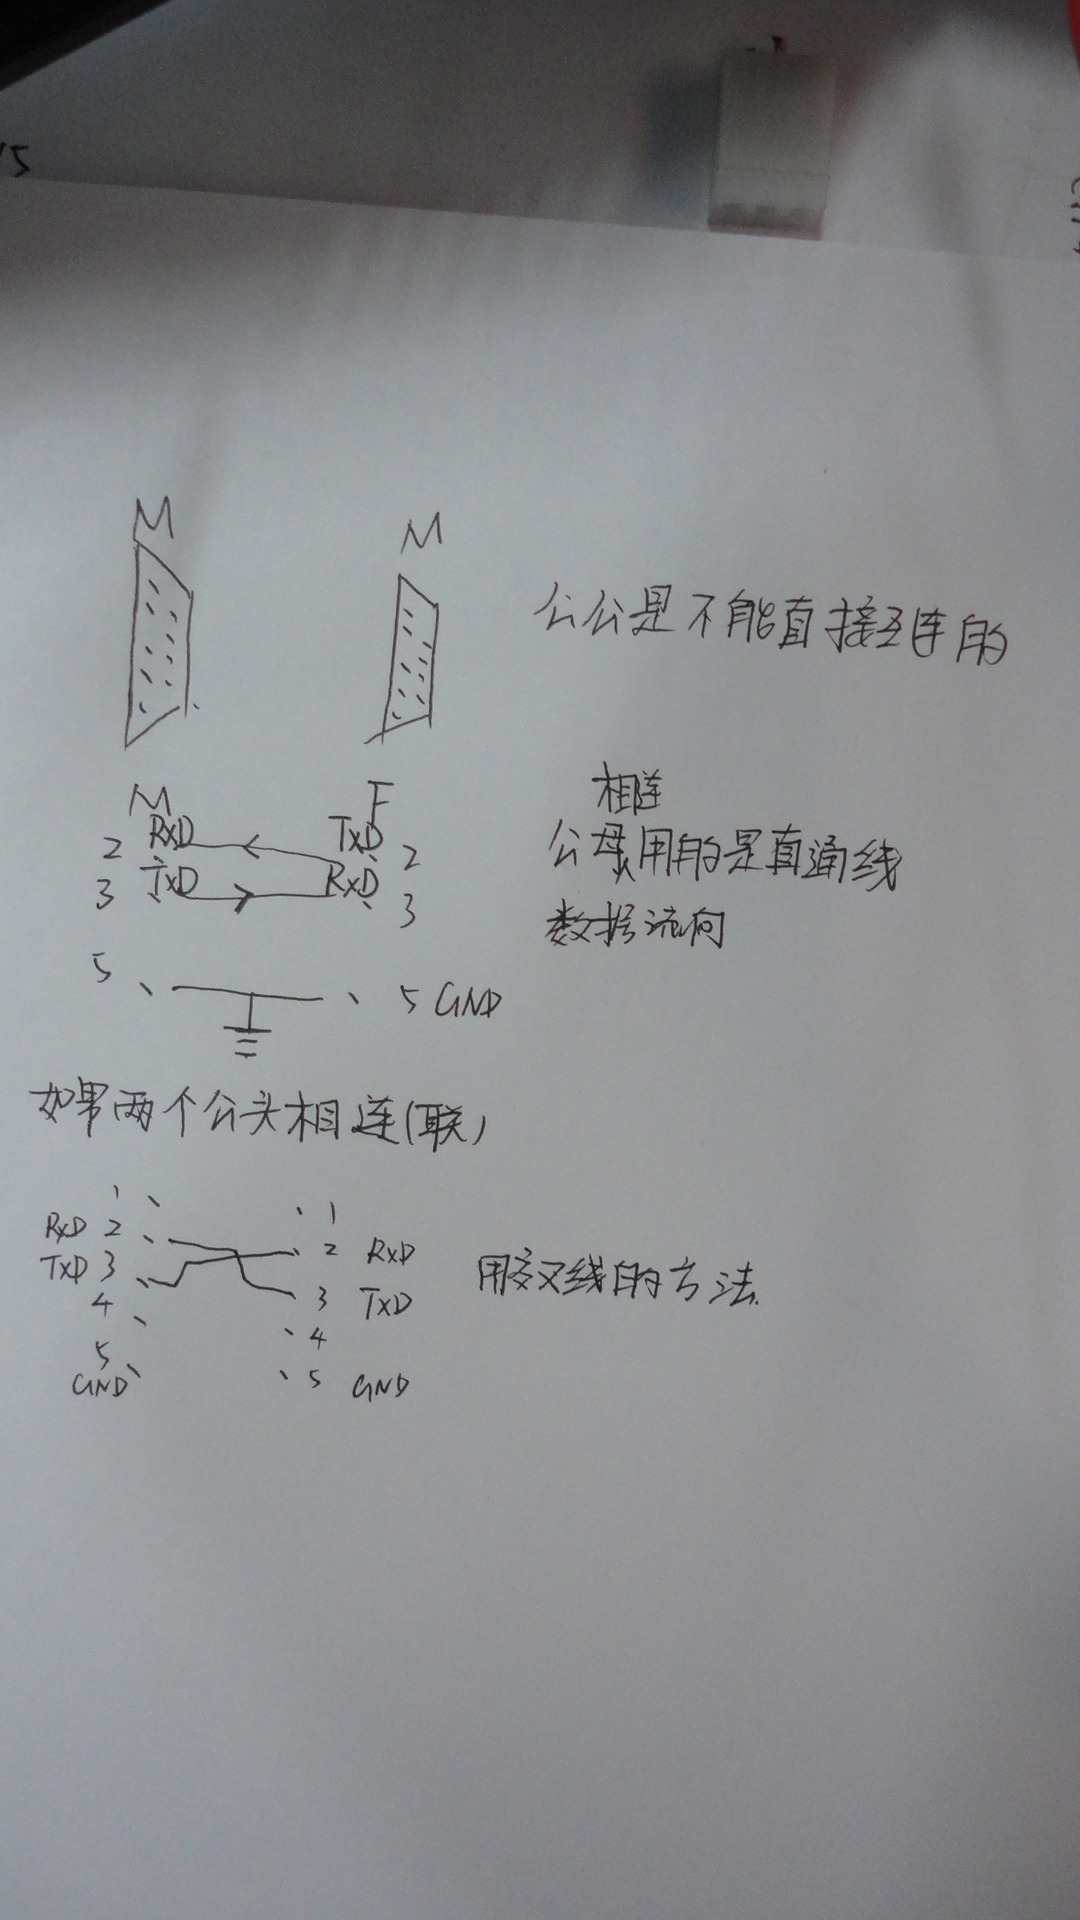 15
M M
公公是不能直接互连的
M F
相连
2 RxD TxD 2
公母用的是直通线
3 TxD RxD 3
数据流向
5 5 GND
如果两个公头相连(联)
1 1
RxD 2 2 RxD
TxD 3 3 TxD
用交叉线的方法.
4 4
5 5 GND
GND